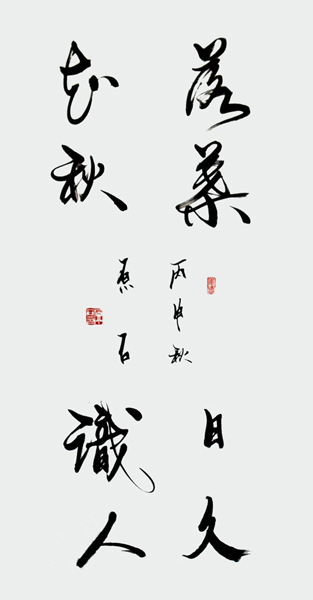 落葉
知秋
丙申秋
石
日久
識人